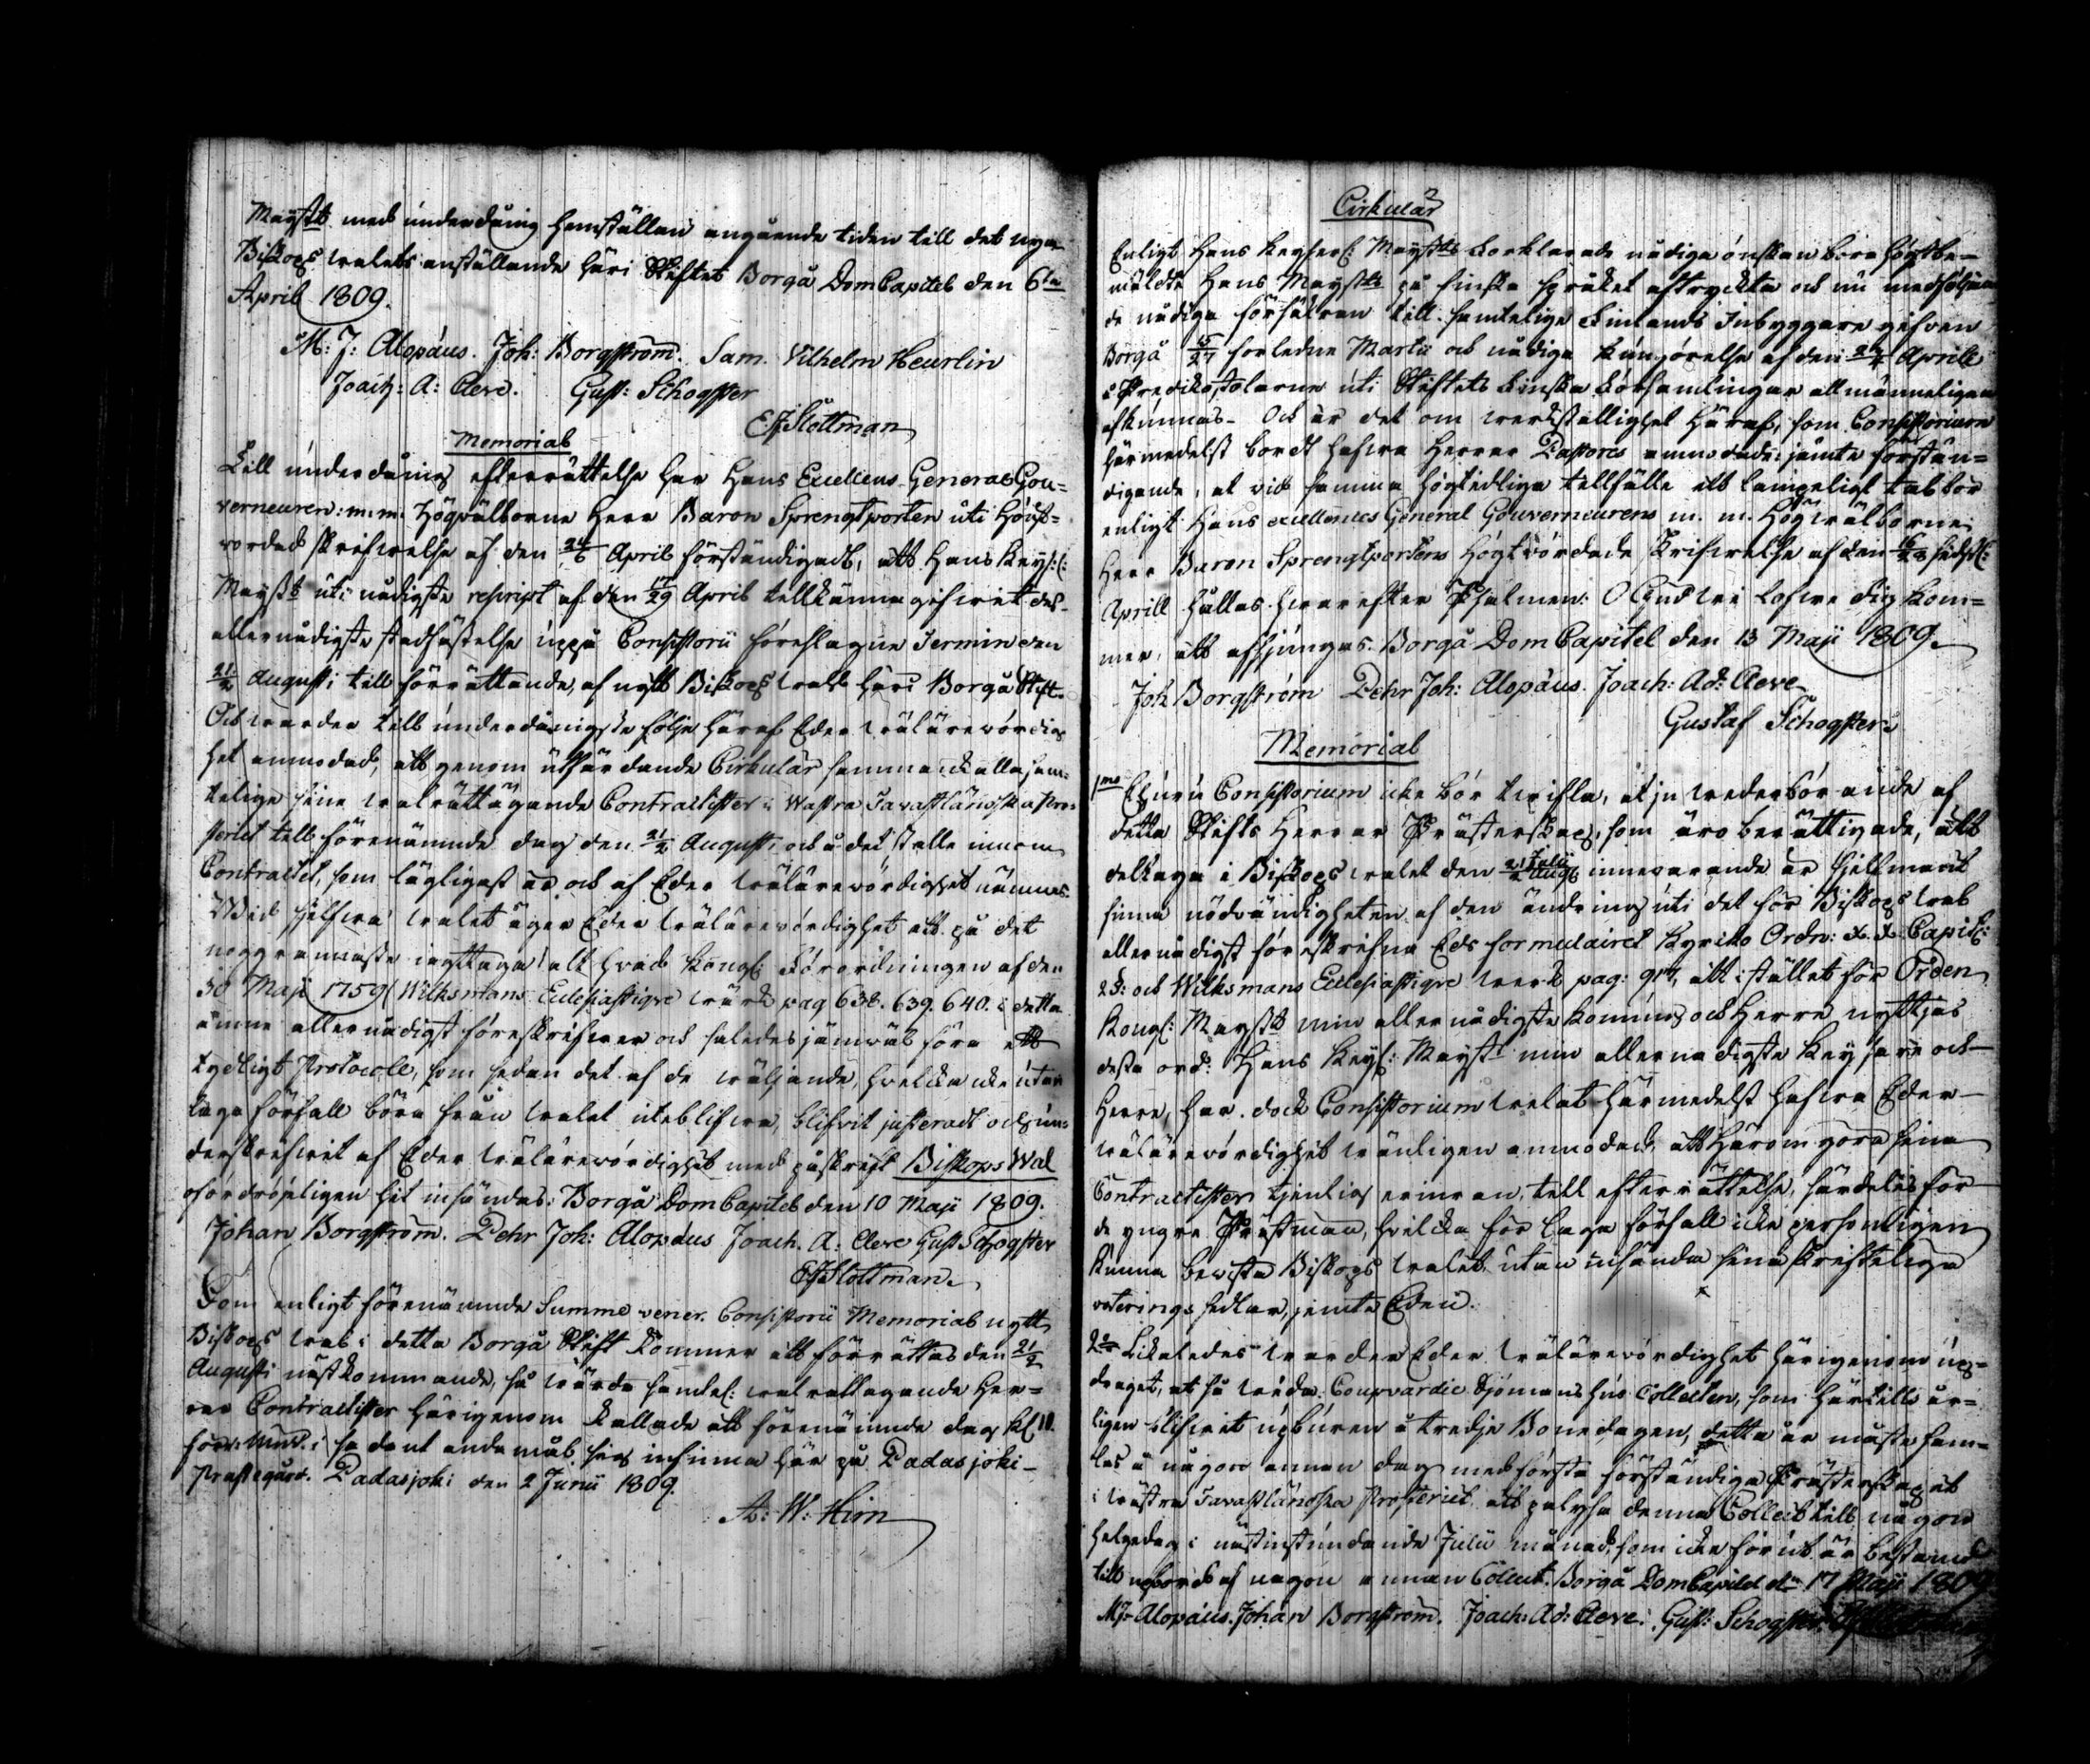 Mayst:t med underdånig hemställan angående tiden till det nya
Biskops walets anställande häri Stiftet Borgå DomCapitel den 6:te
April 1809.
M: J: Alopæus. Joh: Borgström. Sam. Vilhelm Heurlin
Joach: A: Cleve. Gust: Schogster
E J Slottman
Memorial
Till underdånig efterrättelse har Hans Excellens General Gou=
verneuren: m: m: Högvälborne Herr Baron Sprengtporten uti Högst=
vordad skrifwelse af den 24/6 April förständigadt, att Hans Keys:l:
Mayst:t uti nådigste rescript af den 17/29 April tillkänna gifwit des
allernådigste stadfästelse uppå Consistorii föreslagne Termin den
21/2 Augusti till förrättande, af nytt Biskops wal häri Borgå Stift
Och warder till underdånigste följe häraf Eder wälärewördig
het anmodad, att genom utfärdande Cirkulär samma kalla sam=
telige sine walrättägande Contractister i Wästra Tavastländska Pro=
steriet till förenämnde dag den 21/2 Augusti, och å det ställe innom
Contractet, som lägligast är och af Eder wälärewördighet nämnes.
Wid sjelfwa walet äger Eder wälärewördighet att på det
noggrannaste iagttaga allt hvad Kongl: Förordningen af den
30 Maji 1759 (Wilksmans Eclesiastique wärck pag 638. 639. 640. i detta
ämne allernådigst föreskrifwer och saledes jämwäl föra ett
tydligt Protocoll, som sedan det af de wäljande, hvilcka icke utan
laga förfall böra från walet uteblifwa, blifvit justeradt och un=
derskrifwit af Eder wälärewördighet med påskrift Biskops Wal
ofördröjeligen hit insändas: Borgå DomCapitel den 10 Maji 1809.
Johan Borgström. Pehr Joh: Alopæus Joach. A: Cleve Gust Schogster
E J Slottman.
Som enligt förenämnde Summe vener. Consistorii Memorial nytt
Biskops wal i detta Borgå Stift kommer att förrättas den 21/2
Augusti nästkommande, så wärda samtel: walrättägande Her=
rar Contractister härigenom kallade att förenämnde dag kl 10.
förr: midd. i sådant ändamål sig infinna här på Padasjoki
Prästegård. Padasjoki den 2 Junii 1809.
A: W: Hirn
Cirkulär
Enligt Hans Keyserl: Mayst:ts förklarade nådiga önskan böra högstbe=
mäldte Hans Mayst:ts på finska språket aftryckta och nu medföljan
de nådiga försäkran till samtelige Finlands Inbyggare gifwen
Borgå 15/27 förledne Martii och nådige kungörelse af den 24/4 Aprill
i Predikostolarne uti Stiftets Finska Församlingar allmänneligen
afkunnas. Och är det om werkställighet häraf, som Consistorium
härmedelst bordt hafwa Herrar Pastores anmodade: jämte förstän=
digande, at vid samma högtidliga tillfälle ett lämpeligt tal bör
enligt Hans excellences General Gouverneurens m. m. Högwälborne
Herr Baron Sprengtportens Högt vördade Skrifwelse af den 16/28 sidstl:
Aprill hållas hwarefter Psalmen: O Gud wi lofwe dig kom=
mer, att afsjungas. Borgå Dom Capitel den 13 Maji 1809.
Joh Borgström Pehr Joh: Alopæus. Joach: Ad: Cleve
Gustaf Schogster
Memorial
1:mo Ehuru Consistorium icke bör twifla, at ju wederbörande af
detta Stifts Herrar Prästerskap, som äro berättigade, att
deltaga i Biskops walet den 21/2 Julii/Aug innevarande år sjelfmant
finna nödvändigheten af den ändring uti det för Biskops wal
allernådigst föreskrifna Eds formulairet Kyriko Ordn: &. &. Capitl:
2 §: och Wilksmans Eclesiastique werck pag: 917, att i stället för Orden
Kongl: Mayst:t min allernådigste Konung och Herre nyttjas
dessa ord: Hans Keys: Mayst:t min allernådigste Keysare och
Herre, har dock Consistorium welat härmedelst hafwa Eder
wälärewördighet wänligen anmodad, att härom göra sina
Contractister tjenlig erinran, till efterrättelse, särdeles för
de yngre Prästmän, hvilcka för laga förfall icke personligen
kunna bewista Biskops walet, utan insända sina skrifteliga
voterings sedlar, jemte Eden.
2:o Likaledes warder Eder wälärewördighet härigenom up=
draget, at så wida Coupvardie Sjömans hus Collecten, som härtills år=
ligen blifwit upburen å tredje Bönedagen, detta år måste sam=
las å någon annan dag med första förständiga Prästerskapet
i wästra Tavastländska Prosteriet, att pålysa denna Collect till någon
helgedag i nästinstundande Julii månad, som icke förut är bestämd
till upbörd af någon annan Collect. Borgå DomCapitel d: 17 Maji 1809
M J: Alopæus. Johan Borgström. Joach: Ad: Cleve. Gust: Schogster.